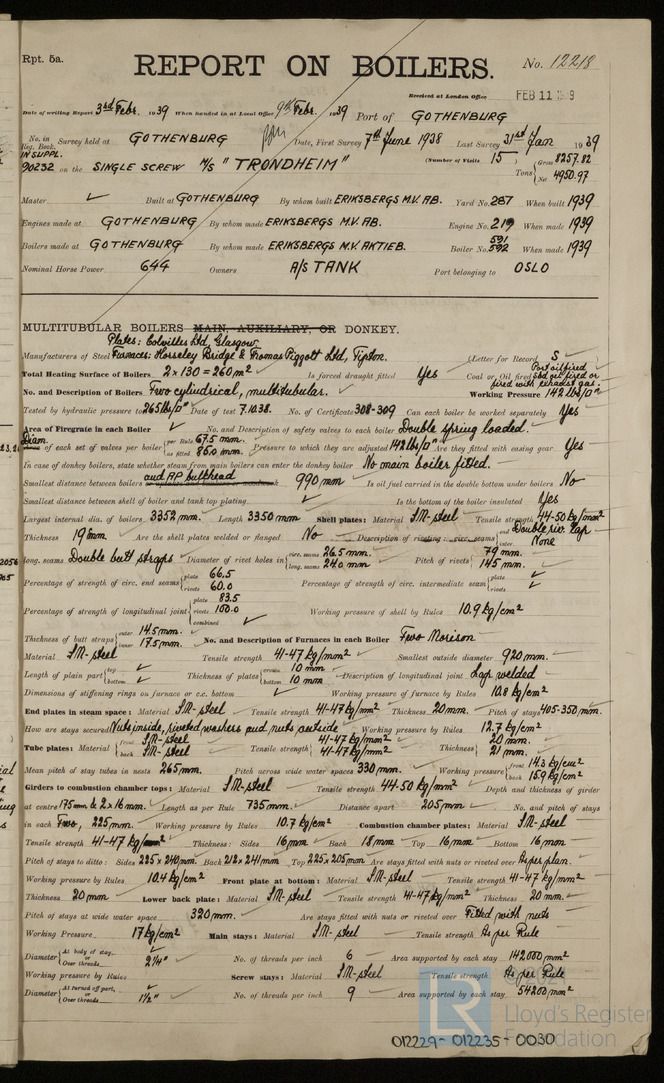 Rpt. 5a.
REPORT ON BOILERS.
No. 12218
Received at London Office FEB 11
Date of writing Report 3rd Febr. 1939 When handed in at Local Office 9th Febr. 1939 Port of GOTHENBURG
No. in Reg. Book. Survey held at GOTHENBURG Date, First Survey 7th June 1938 Last Survey 31st Jan 1939
IN SUPPL.
90232 on the SINGLE SCREW M/S "TRONDHEIM" (Number of Visits 15) Tons Gross 8257.82 Net 4950.97
Master ✓ Built at GOTHENBURG By whom built ERIKSBERGS M.V. AB. Yard No. 287 When built 1939
Engines made at GOTHENBURG By whom made ERIKSBERGS M.V. AB. Engine No. 219 When made 1939
Boilers made at GOTHENBURG By whom made ERIKSBERGS M.V. AKTIEB. Boiler No. 591 592 When made 1939
Nominal Horse Power 644 Owners A/S TANK Port belonging to OSLO
MULTITUBULAR BOILERS MAIN, AUXILIARY, OR DONKEY.
Plates: Colvilles Ltd, Glasgow.
Manufacturers of Steel Furnaces: Horseley Bridge & Thomas Piggott Ltd, Tipton. (Letter for Record S
Total Heating Surface of Boilers 2 x 130 = 260 m² Is forced draught fitted Yes Coal or Oil fired Port oil fired Sbd oil fired or fired with exhaust gas.
No. and Description of Boilers Two cylindrical, multitubular. Working Pressure 142 lbs/□"
Tested by hydraulic pressure to 265 lbs/□" Date of test 7.10.38. No. of Certificate 308-309 Can each boiler be worked separately Yes
Area of Firegrate in each Boiler ✓ No. and Description of safety valves to each boiler Double spring loaded.
Diam. of each set of valves per boiler per Rule 67.5 mm. as fitted 85.0 mm. Pressure to which they are adjusted 142 lbs/□" Are they fitted with easing gear Yes
In case of donkey boilers, state whether steam from main boilers can enter the donkey boiler No main boiler fitted.
Smallest distance between boilers and AP bulkhead 990 mm Is oil fuel carried in the double bottom under boilers No
Smallest distance between shell of boiler and tank top plating ✓ Is the bottom of the boiler insulated Yes
Largest internal dia. of boilers 3352 mm. Length 3350 mm Shell plates: Material S.M-steel Tensile strength 44-50 kg/mm²
Thickness 19 mm. Are the shell plates welded or flanged No Description of riveting: circ. seams end Double riv. lap inter. None
long. seams Double butt straps Diameter of rivet holes in circ. seams 26.5 mm. long. seams 24.0 mm Pitch of rivets 79 mm. 145 mm.
Percentage of strength of circ. end seams plate 66.5 rivets 60.0 Percentage of strength of circ. intermediate seam plate ✓ rivets ✓
Percentage of strength of longitudinal joint plate 83.5 rivets 100.0 combined ✓ Working pressure of shell by Rules 10.9 kg/cm²
Thickness of butt straps outer 14.5 mm. inner 17.5 mm. No. and Description of Furnaces in each Boiler Two Morison
Material S.M-steel Tensile strength 41-47 kg/mm² Smallest outside diameter 920 mm.
Length of plain part top ✓ bottom ✓ Thickness of plates crown 10 mm bottom 10 mm Description of longitudinal joint Lap welded
Dimensions of stiffening rings on furnace or c.c. bottom ✓ Working pressure of furnace by Rules 10.8 kg/cm²
End plates in steam space: Material S.M-steel Tensile strength 41-47 kg/mm² Thickness 20 mm. Pitch of stays 405-350 mm.
How are stays secured Nuts inside, riveted washers and nuts outside Working pressure by Rules 12.7 kg/cm²
Tube plates: Material front S.M-steel back S.M-steel Tensile strength 41-47 kg/mm² 41-47 kg/mm² Thickness 20 mm. 21 mm.
Mean pitch of stay tubes in nests 265 mm. Pitch across wide water spaces 330 mm. Working pressure front 14.3 kg/cm² back 15.9 kg/cm²
Girders to combustion chamber tops: Material S.M-steel Tensile strength 44-50 kg/mm² Depth and thickness of girder
at centre 175 mm & 2 x 16 mm. Length as per Rule 735 mm. Distance apart 205 mm. No. and pitch of stays
in each Two, 225 mm. Working pressure by Rules 10.7 kg/cm² Combustion chamber plates: Material S.M-steel
Tensile strength 41-47 kg/mm² Thickness: Sides 16 mm Back 18 mm Top 16 mm Bottom 16 mm
Pitch of stays to ditto: Sides 225 x 240 mm. Back 212 x 241 mm Top 225 x 205 mm Are stays fitted with nuts or riveted over As per plan.
Working pressure by Rules 10.4 kg/cm² Front plate at bottom: Material S.M-steel Tensile strength 41-47 kg/mm²
Thickness 20 mm Lower back plate: Material S.M-steel Tensile strength 41-47 kg/mm² Thickness 20 mm.
Pitch of stays at wide water space 320 mm. Are stays fitted with nuts or riveted over Fitted with nuts
Working Pressure 17 kg/cm² Main stays: Material S.M-steel Tensile strength As per Rule
Diameter At body of stay, or Over threads 2¼" No. of threads per inch 6 Area supported by each stay 142000 mm²
Working pressure by Rules Screw stays: Material S.M-steel Tensile strength As per Rule
Diameter At turned off part, or Over threads 1½" No. of threads per inch 9 Area supported by each stay 54200 mm²
LR Lloyd's Register Foundation
012229-012235-0030